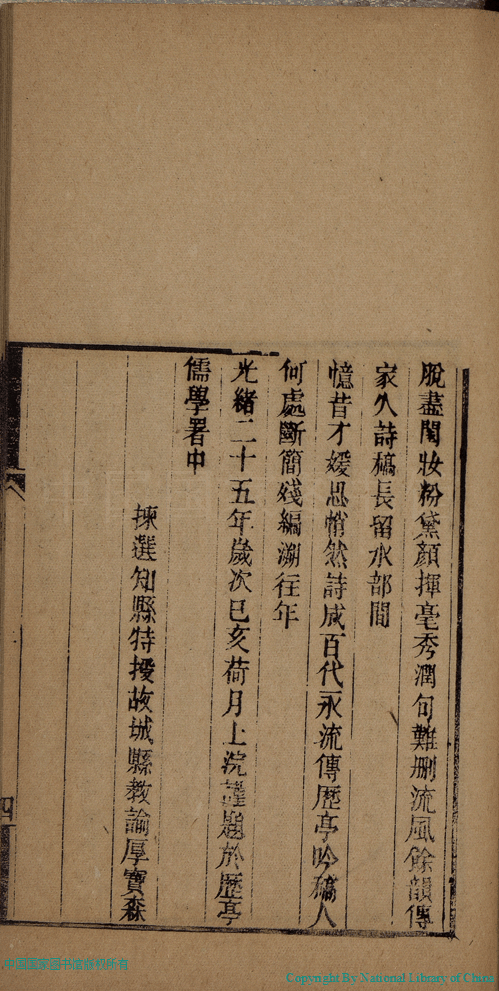 脫盡閨妝粉黛顏揮毫秀潤句難刪流風餘韻傳
家久詩稿長留水部間
憶昔才媛思悄然詩成百代永流傳歷亭吟稿人
何處斷簡殘編溯往年
光緒二十五年歲次己亥荷月上浣謹題於歷亭
儒學署中
揀選知縣特授故城縣教諭厚寶森
四
中国国家图书馆版权所有
Copyright By National Library of China